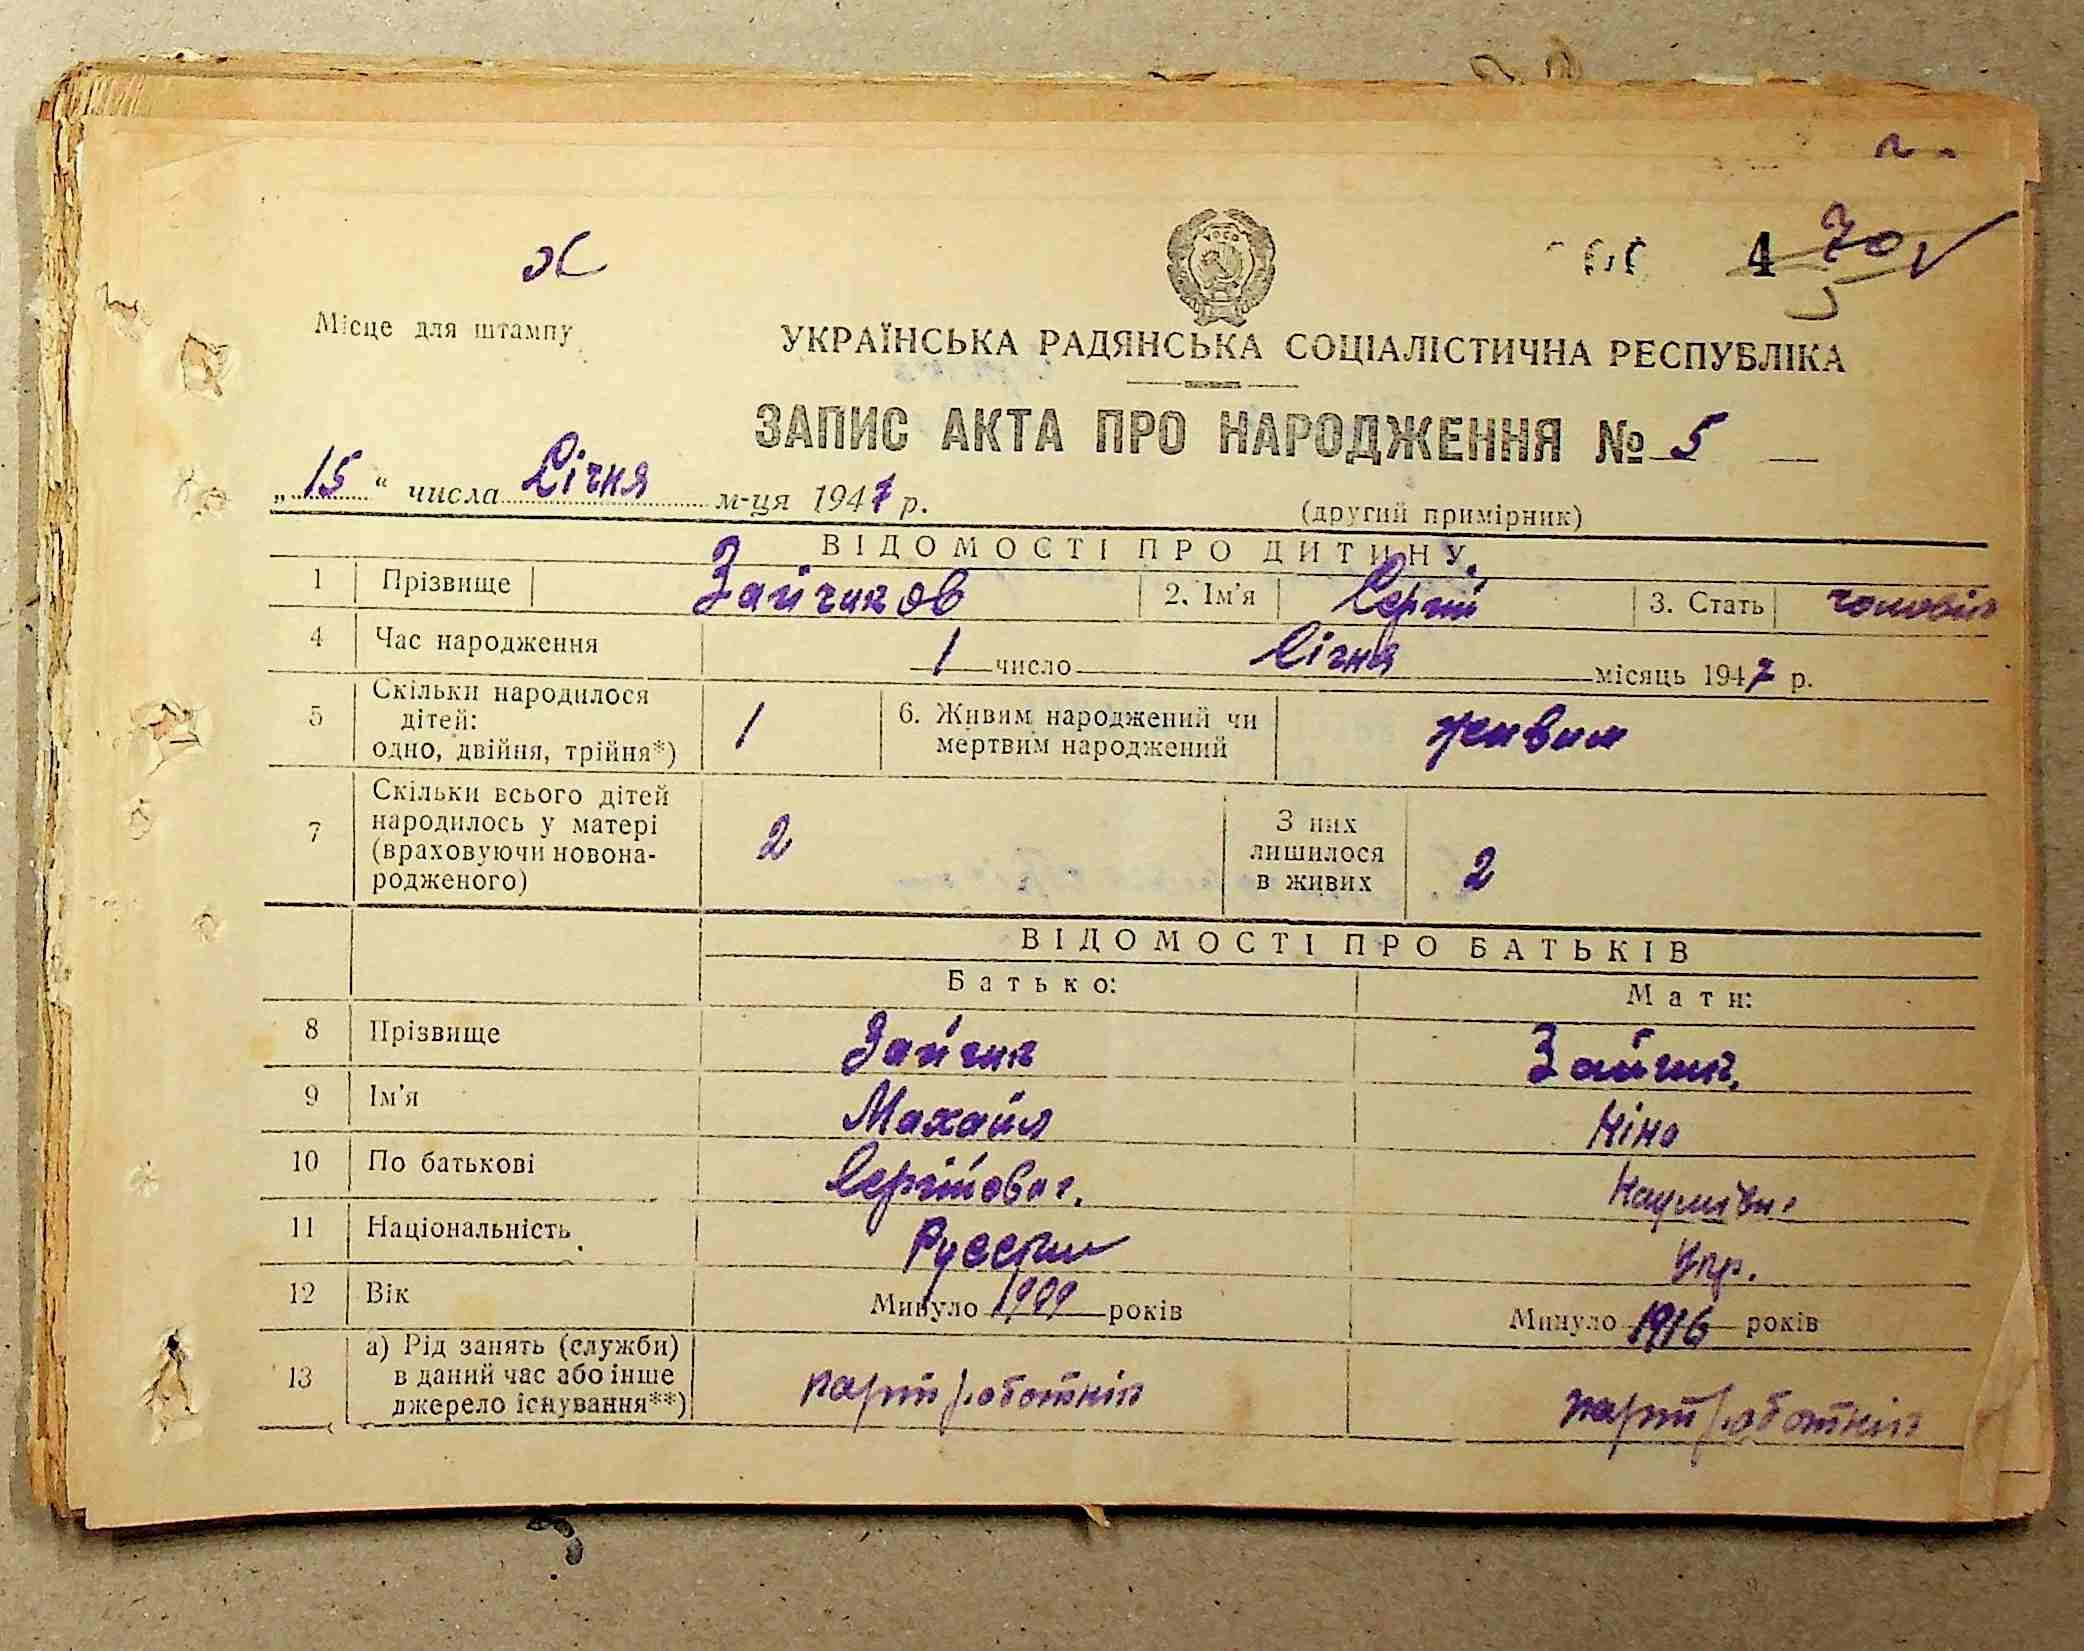 4 70
5
Місце для штампу
УКРАЇНСЬКА РАДЯНСЬКА СОЦІАЛІСТИЧНА РЕСПУБЛІКА
ЗАПИС АКТА ПРО НАРОДЖЕННЯ № 5
„15“ числа Січня м-ця 1947 р.
(другий примірник)
ВІДОМОСТІ ПРО ДИТИНУ.
1 Прізвище Зайчиков 2. Ім'я Сергій 3. Стать чоловік
4 Час народження 1 число Січня місяць 1947 р.
5 Скільки народилося
дітей:
одно, двійня, трійня*) 1
6. Живим народжений чи
мертвим народжений живим
7 Скільки всього дітей
народилось у матері
(враховуючи новона-
родженого) 2
З них
лишилося
в живих 2
ВІДОМОСТІ ПРО БАТЬКІВ
Батько: Мати:
8 Прізвище Зайчик Зайчик.
9 Ім'я Махайл Ніна
10 По батькові Сергійович. Наумівна
11 Національність Русский Укр.
12 Вік Минуло років Минуло 1916 років
13 а) Рід занять (служби)
в даний час або інше
джерело існування**)
парт работнік парт работнік